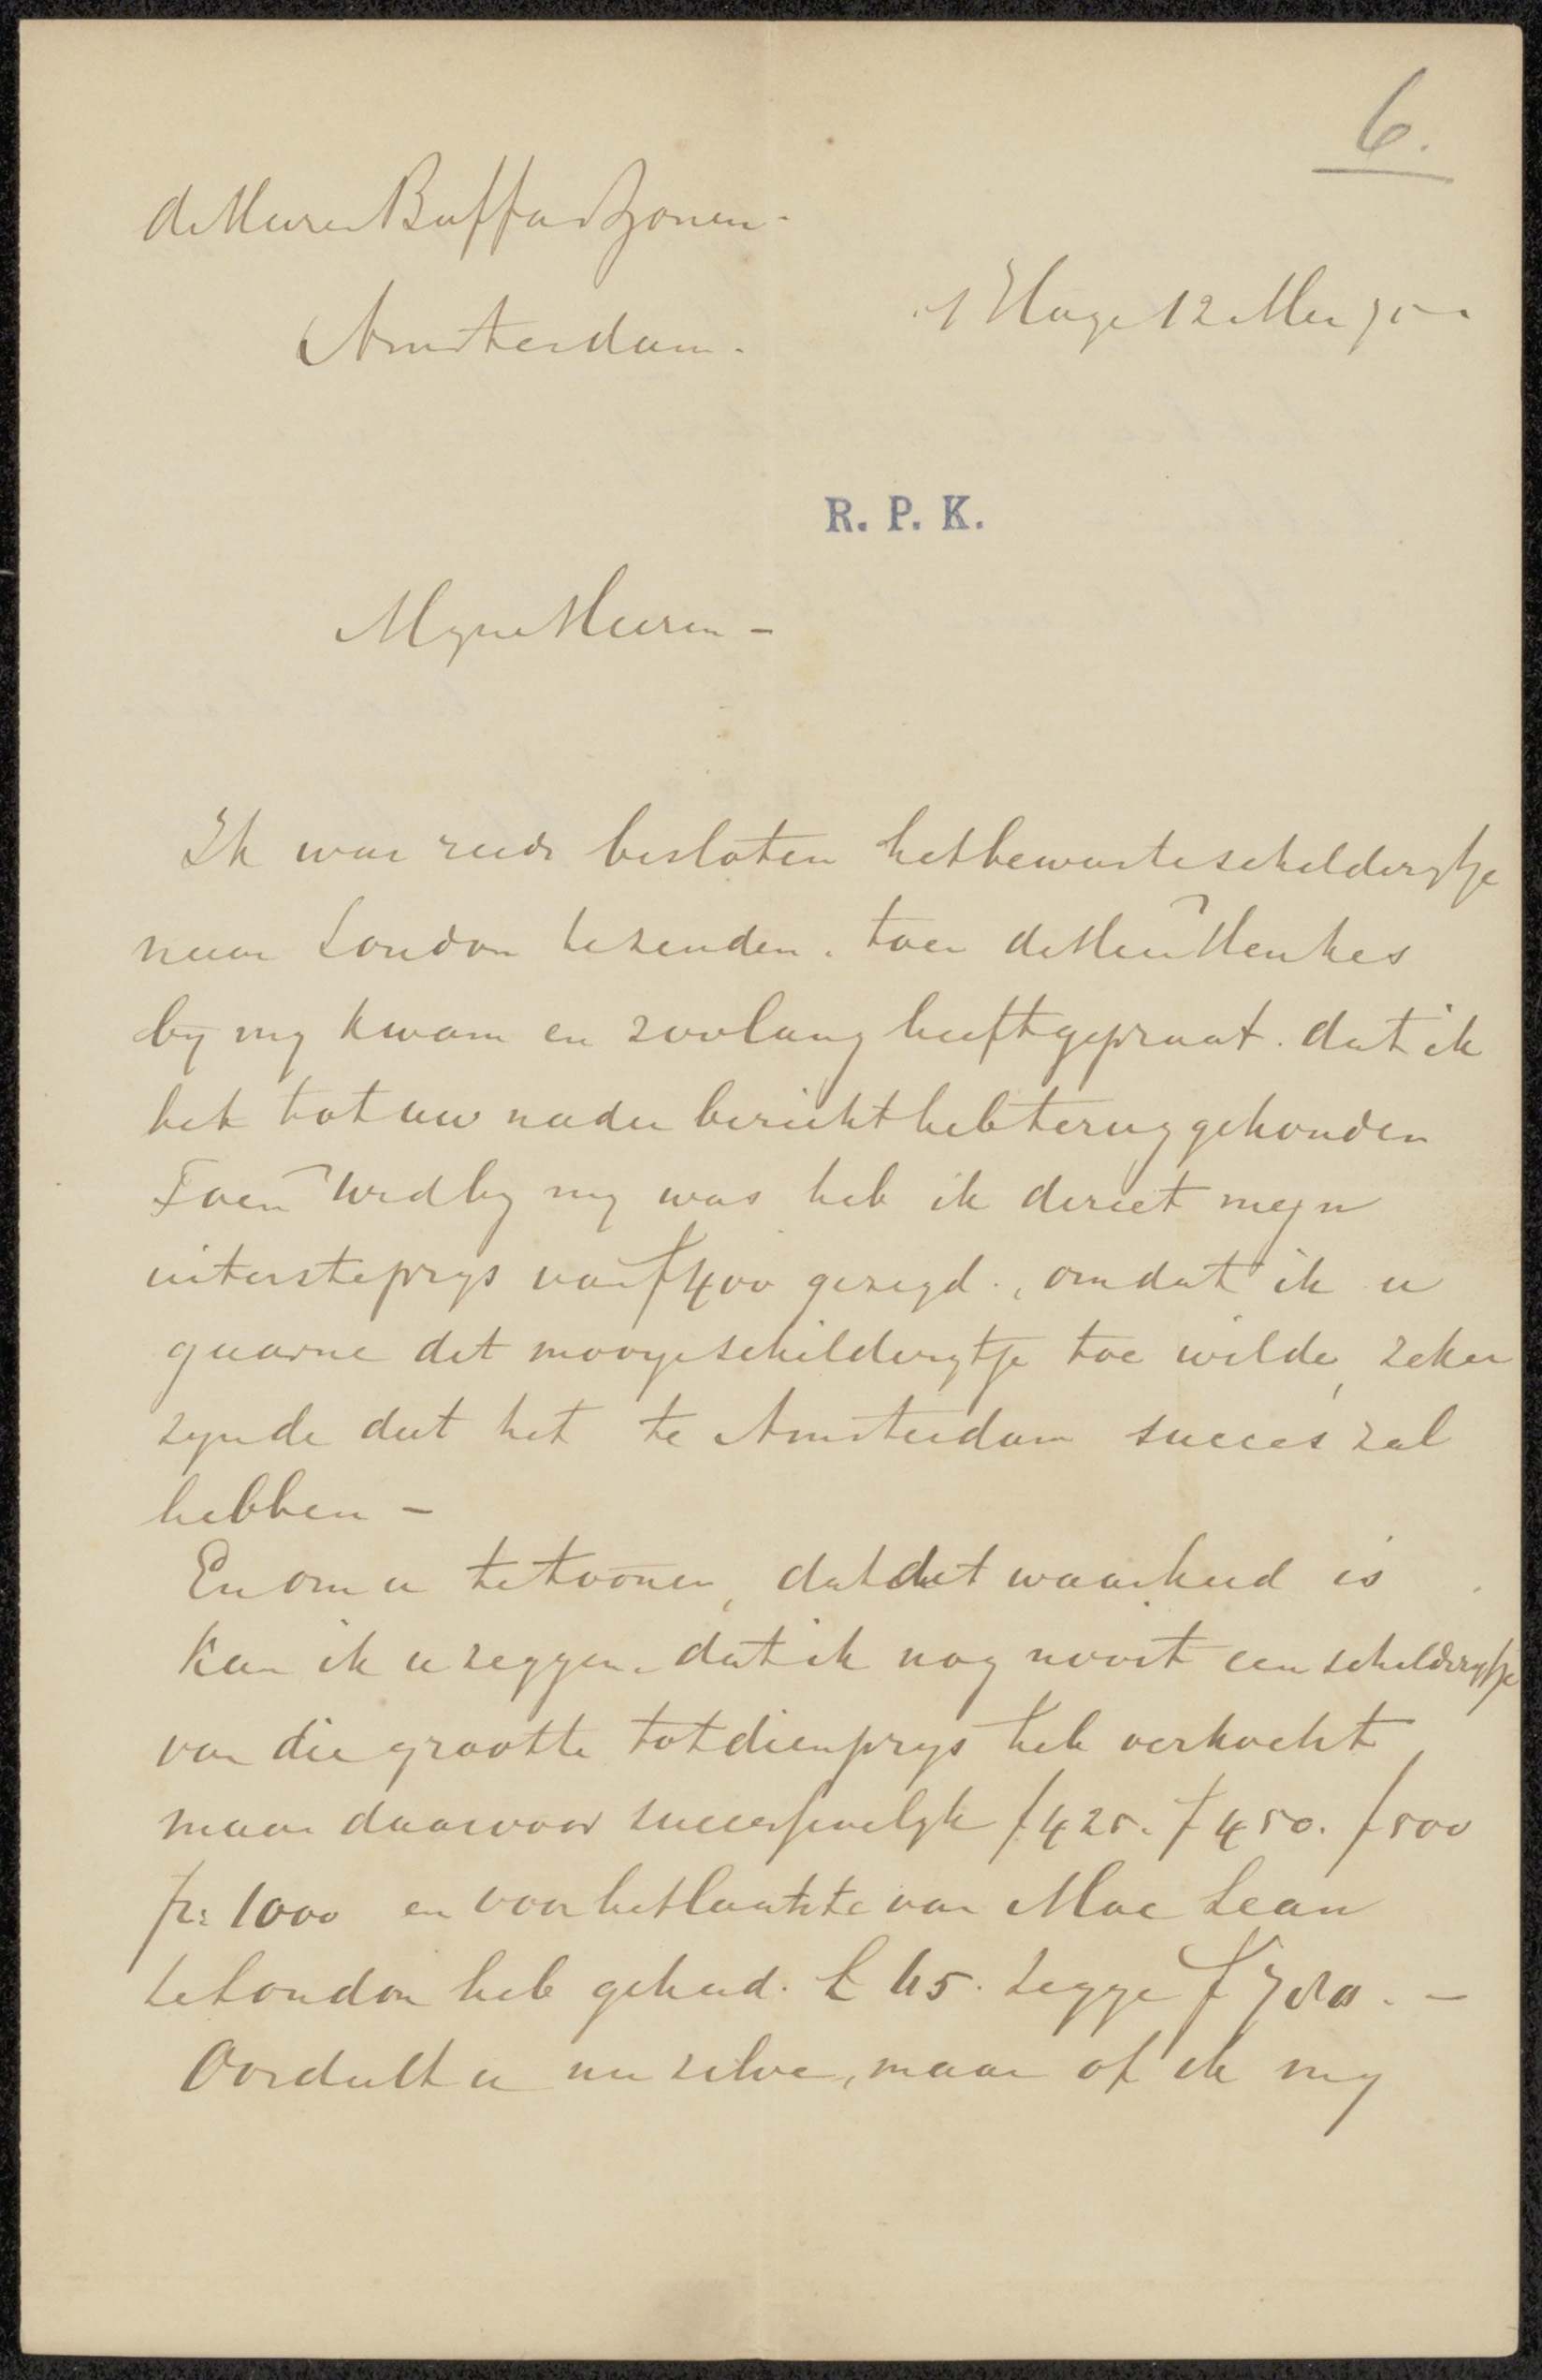 6.
de Heeren Buffa & Zonen -
Amsterdam -
's Hage 12 Mei
R. P. K.
Myne Heeren -
Ik was reeds besloten het bewuste schilderytje
naar London te zenden. toen de Heer Henkes
by my kwam en zoolang heeft gepraat. dat ik
het tot uw nader bericht heb terug gehouden
Toen by my was heb ik direct mijn
uiterste prys van ƒ400 gezegd., omdat ik u
gaarne dit mooye schilderytje toe wilde, zeker
zynde dat het te Amsterdam succes zal
hebben -
En om u te toonen, dat dit waarheid is
kan ik u zeggen. dat ik nog nooit een schilderytje
van die grootte tot dien prys heb verkocht
maar daarvoor successivelyk ƒ425. ƒ450. ƒ500
fr: 1000 en voor het laatste van Mac Lean
te London heb gehad. £ 65. zegge ƒ780. -
Oordeelt u nu zelve, maar of ik my